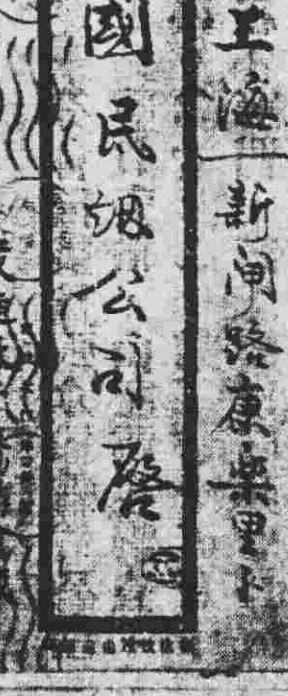 上海
新閘路康樂里
國民烟公司啓